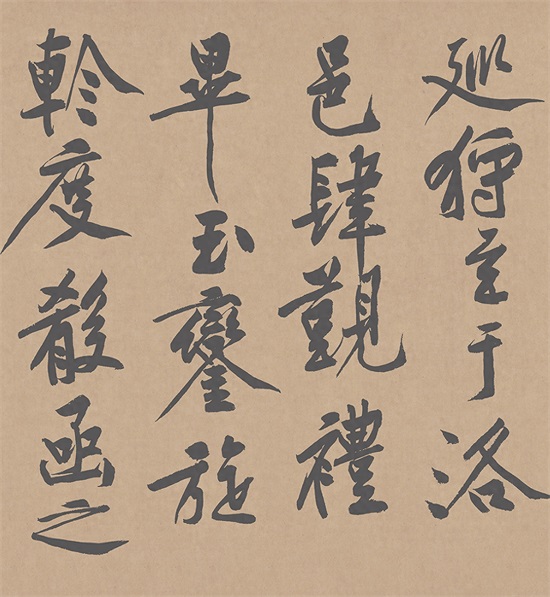 巡狩至于洛
邑肆覲禮
畢玉鑾旋
軫度殽函之